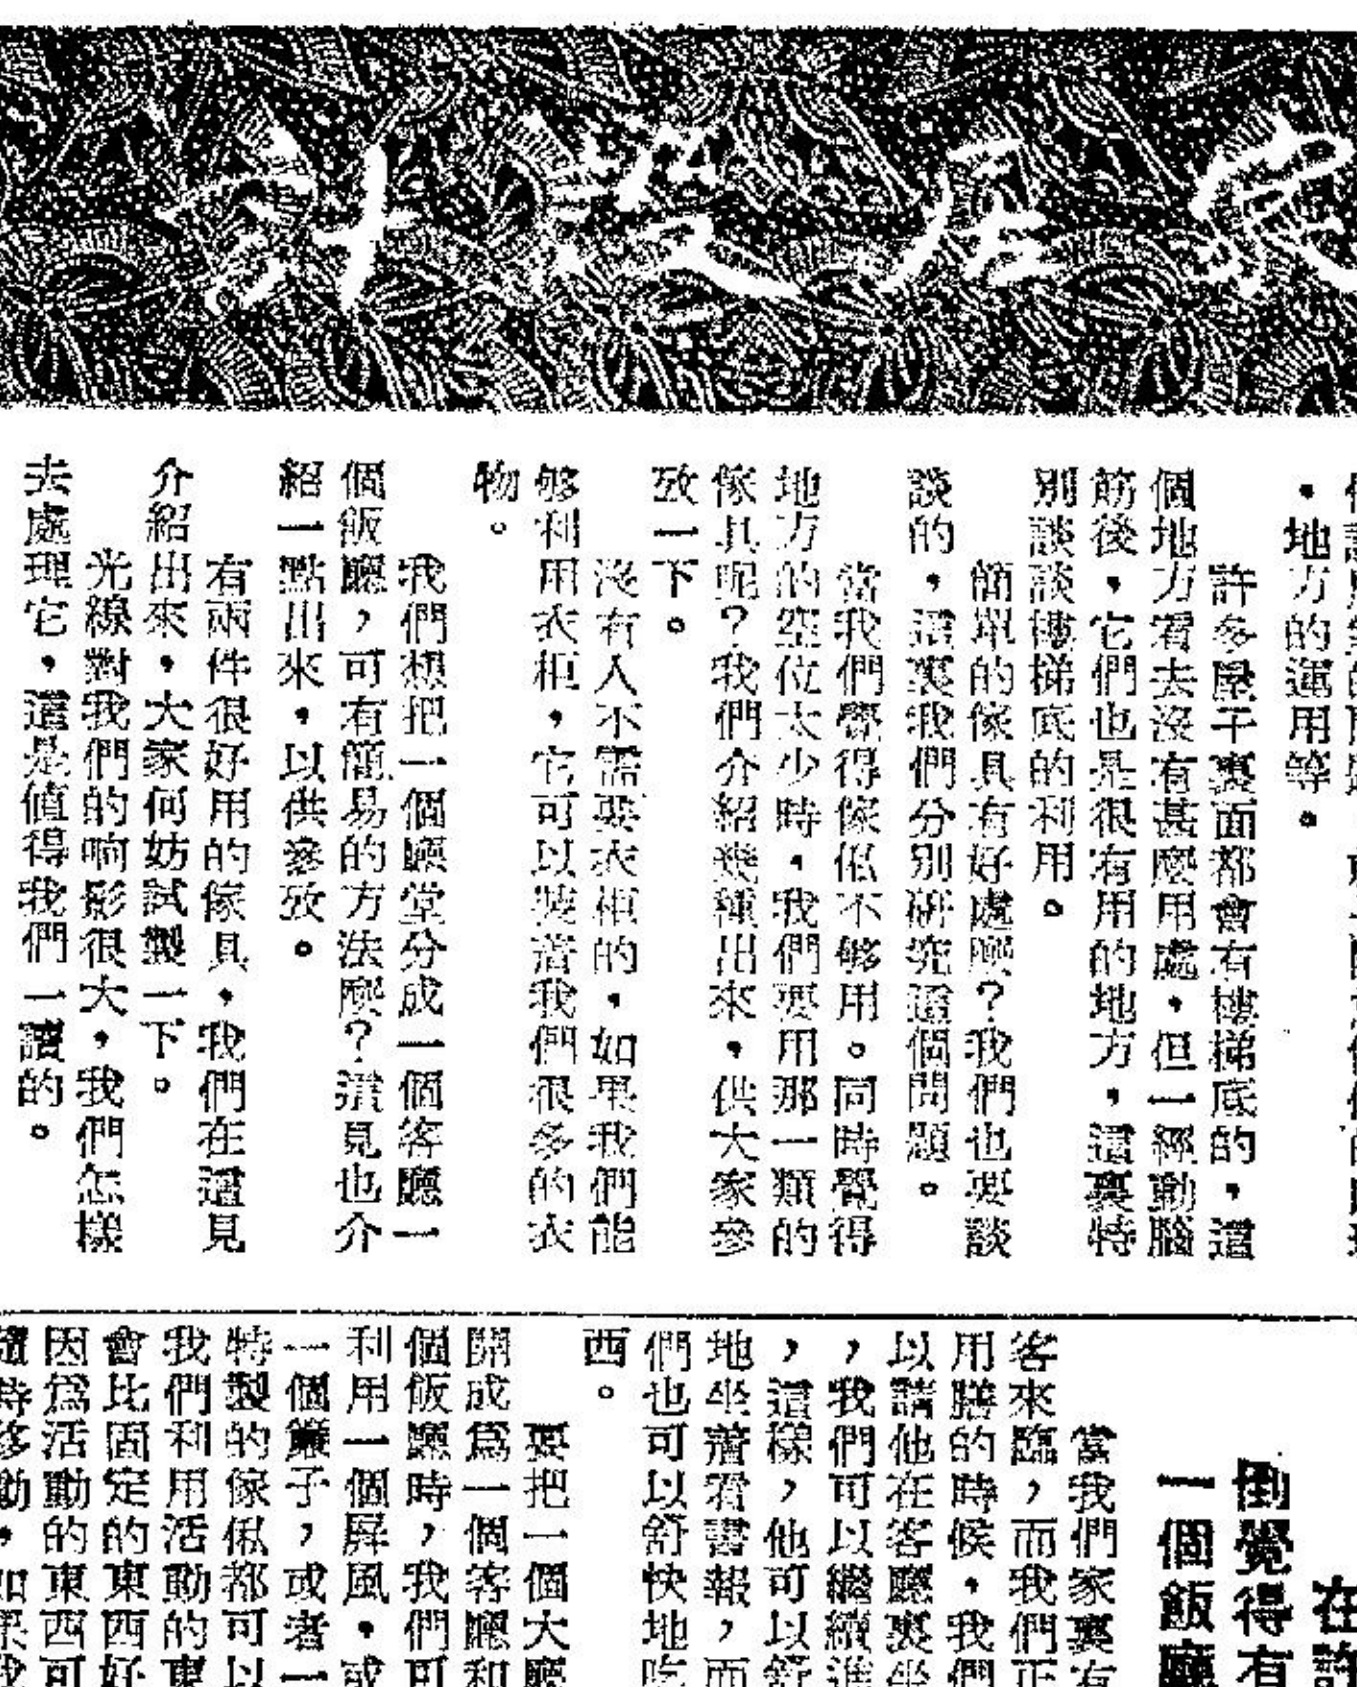 家居設計
・地方的運用等。
許多屋子裏面都會有樓梯底的,這
個地方看去沒有甚麼用處,但一經動腦
筋後,它們也是很有用的地方,這裏特
別談談樓梯底的利用。
簡單的傢具有好處麼?我們也要談
談的,這裏我們分別研究這個問題。
當我們覺得傢俬不够用。同時覺得
地方的空位太少時,我們要用那一類的
傢具呢?我們介紹幾種出來,供大家參
攷一下。
沒有人不需要衣柜的,如果我們能
够利用衣柜,它可以裝着我們很多的衣
物。
我們想把一個廳堂分成一個客廳一
個飯廳,可有簡易的方法麼?這見也介
紹一點出來,以供參攷。
有兩件很好用的傢具,我們在這見
介紹出來,大家何妨試製一下。
光線對我們的响影很大,我們怎樣
去處理它,這是值得我們一讀的。
在許
倒覺得有
一個飯廳
當我們家裏有
客來臨,而我們正
用膳的時候,我們
以請他在客廳裏坐
,我們可以繼續進
,這樣,他可以舒
地坐着看書報,而
們也可以舒快地吃
西。
要把一個大廳
開成爲一個客廳和
個飯廳時,我們可
利用一個屏風,或
一個簾子,或者一
特製的傢俬都可以
我們利用活動的東
會比固定的東西好
因爲活動的東西可
隨時移動,如果我